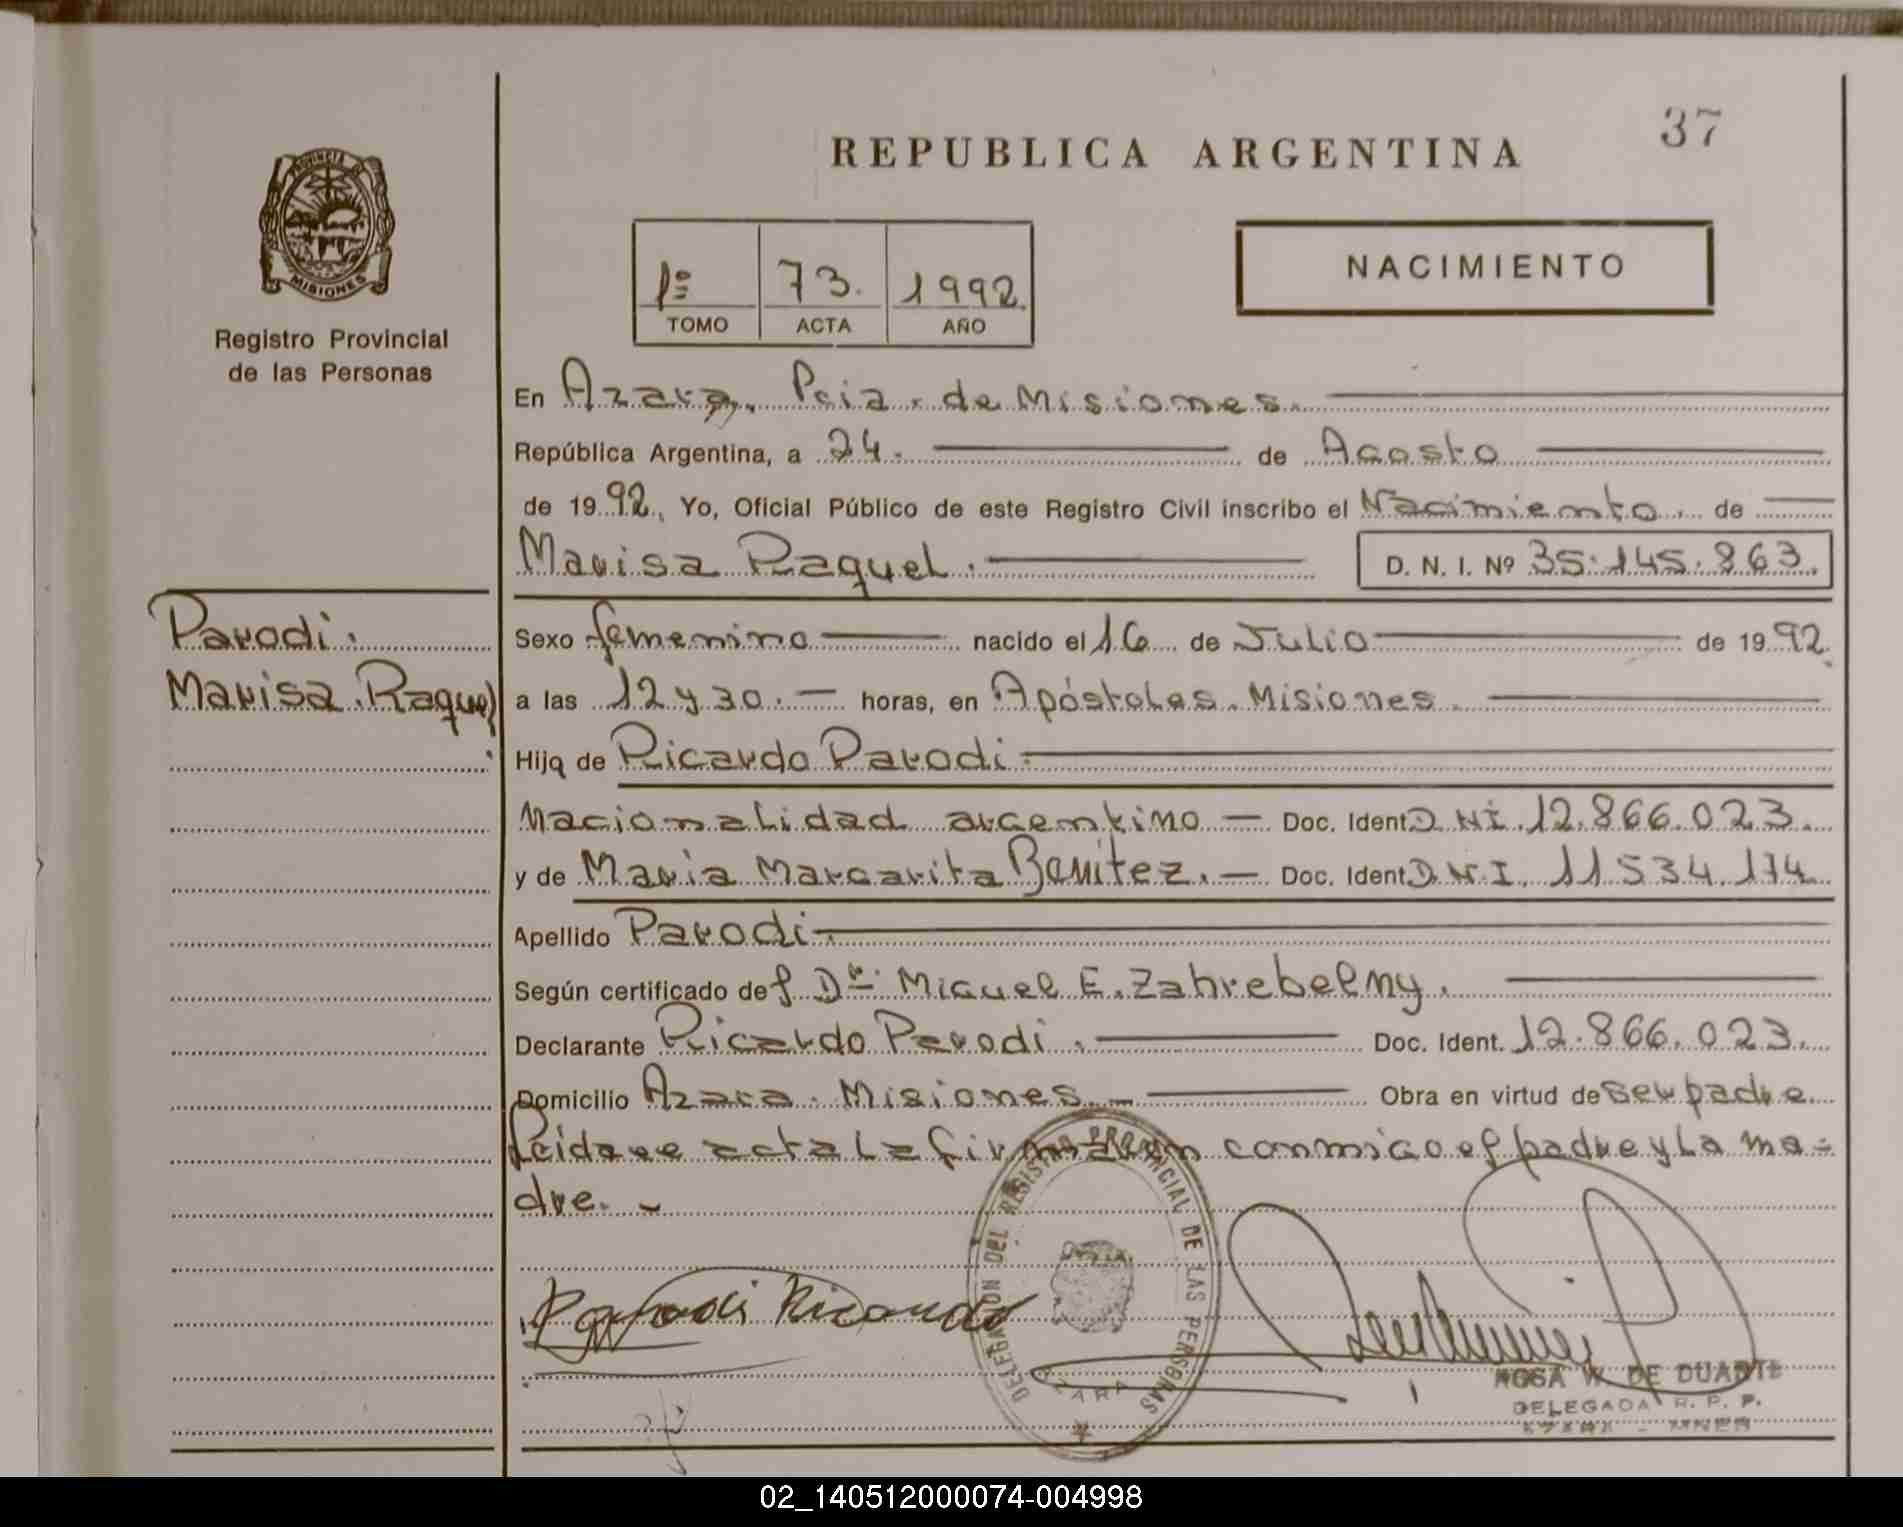 37
REPUBLICA ARGENTINA
PROVINCIA DE
MISIONES
Registro Provincial
de las Personas
1º 73. 1992.
TOMO ACTA AÑO
NACIMIENTO
En Azara, Pcia. de Misiones.
República Argentina, a 24. de Agosto
de 1992, Yo, Oficial Público de este Registro Civil inscribo el Nacimiento. de
Marisa Raquel. D. N. I. Nº 35.145.863.
Parodi.
Marisa Raquel
Sexo femenino nacido el 16 de Julio de 1992.
a las 12 y 30. horas, en Apóstoles. Misiones.
Hija de Ricardo Parodi.
Nacionalidad argentino Doc. Ident D.N.I. 12.866.023.
y de Maria Margarita Benitez. Doc. Ident D.N.I. 11.534.174
Apellido Parodi.
Según certificado del Dr. Miguel E. Zahrebelny.
Declarante Ricardo Parodi. Doc. Ident. 12.866.023.
Domicilio Azara. Misiones. Obra en virtud de ser padre.
Leida el acta la firman conmigo el padre y la ma=
dre.
DELEGACION DEL REGISTRO PROVINCIAL DE LAS PERSONAS
AZARA
Parodi Ricardo
ROSA W. DE DUARTE
DELEGADA R. P. P.
AZARA - MNES
02_140512000074-004998